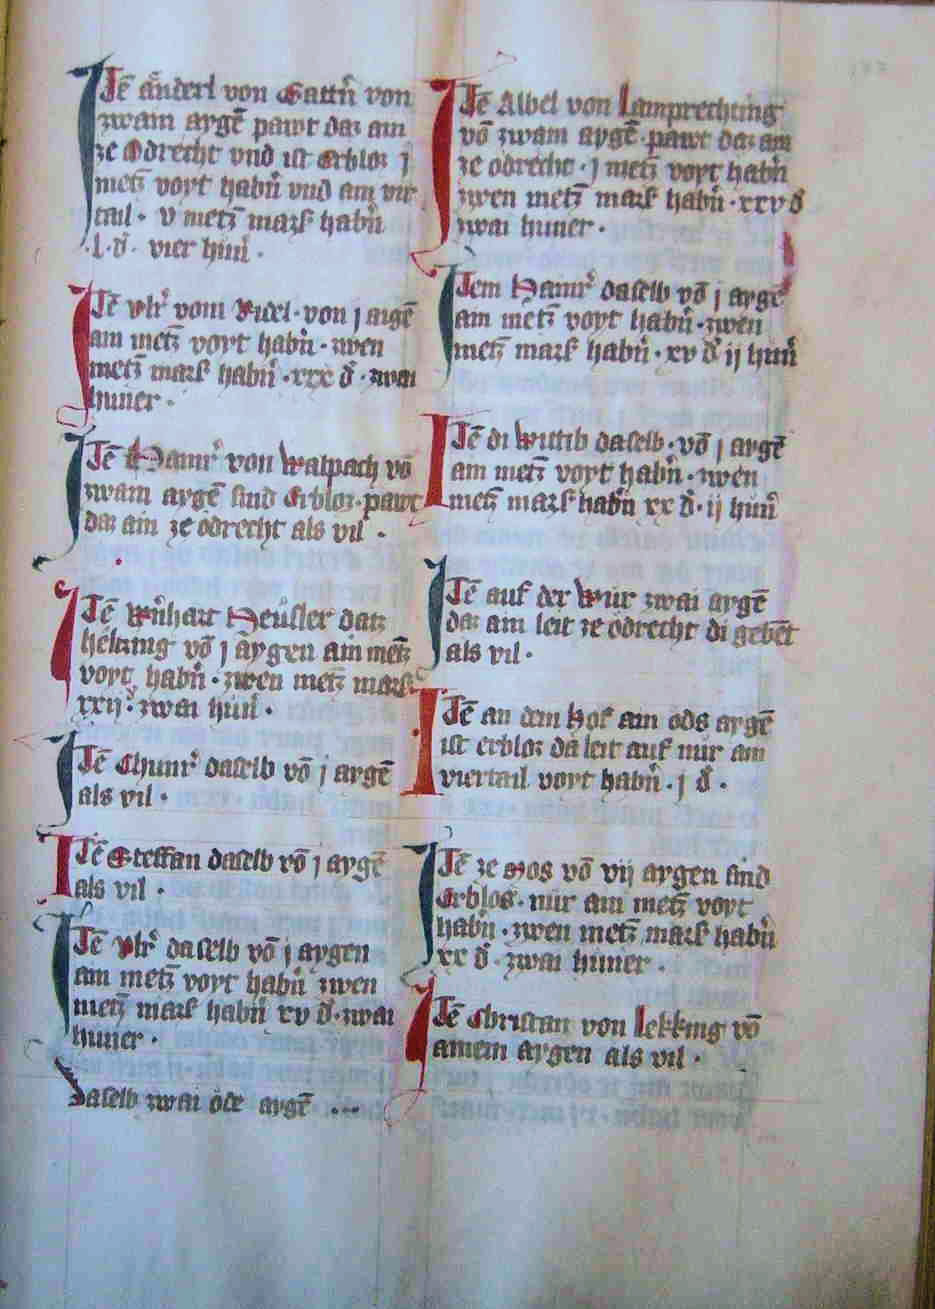 Itē ånderl von Gattn̄ von
zwain aygē pawt daz ain
ze Odrecht vnd ist Erbloz j
metz̄ voyt habn̄ vnd ain vir
tail · v metz̄ mark habn̄
·l·d̄· vier hun̄ ·
Itē vlr̄ vom · von j aigē
ain metz̄ voyt habn̄ · zwen
metz̄ mark habn̄ · xxx d̄ · zwai
huner ·
Itē Hainr̄ von Walpach vō
zwain aygē sind Erbloz · pawt
daz ain ze odrecht als vil ·
Itē Wn̄hart Heusler datz
helking vō j aygen ain metz̄
voyt habn̄ · zwen metz̄ mark
xxij · zwai hun̄ ·
Itē Chunr̄ daselb vō j aygē
als vil ·
Itē Steffan daselb vō j aygē
als vil ·
Itē vlr̄ daselb vō j aygen
ain metz̄ voyt habn̄ zwen
metz̄ mark habn̄ xv d̄ · zwai
huner ·
Daselb zwai öde aygē ...
Itē Albel von Lamprechting
vō zwain aygē · pawt daz ain
ze odrecht · j metz̄ voyt habn̄
zwen metz̄ mark habn̄ · xxv d̄
zwai huner ·
Item Hainr̄ daselb vō j aygē
ain metz̄ voyt habn̄ · zwen
metz̄ mark habn̄ · xv d̄ ij hun̄
Itē di Wittib daselb · vō j aygē
ain metz̄ voyt habn̄ · zwen
metz̄ mark habn̄ xx d̄ · ij hun̄
Itē auf der Wur zwai aygē
daz ain leit ze odrecht di gebēt
als vil ·
Itē an dem Hof ain ods aygē
ist erbloz da leit auf nur ain
viertail voyt habn̄ · j d̄ ·
Itē ze Mos vō vij aygen sind
Erblos · nur ain metz̄ voyt
habn̄ · zwen metz̄ mark habn̄
xx d̄ · zwai huner ·
Itē Christan von Lekking vō
ainem aygen als vil ·